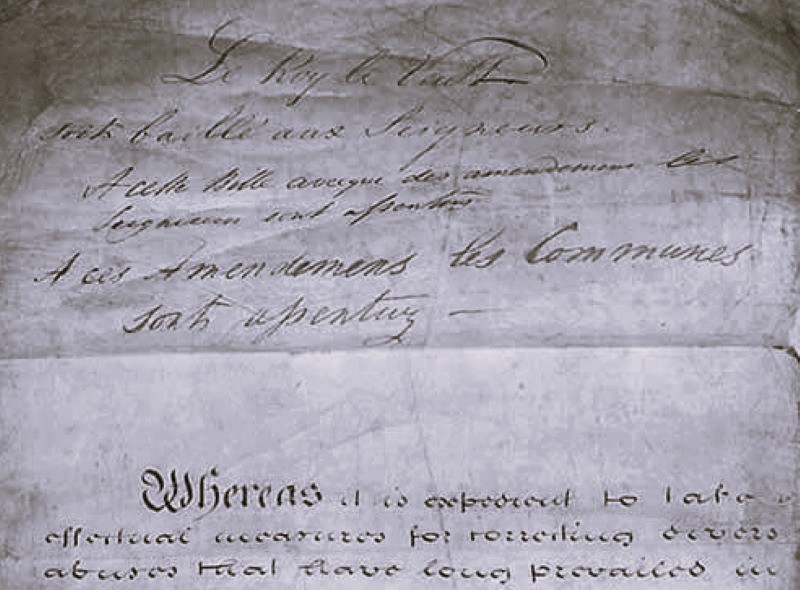 Le Roy le Veult
soit baillé aux Seigneurs.
A cette Bille avecque des amendemens les
Seigneurs sont assentus
A ces Amendemens les Communes
sont assentuz —
Whereas it is expedient to take
effectual measures for correcting divers
abuses that have long prevailed in